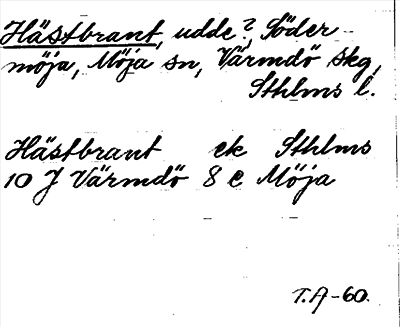 Hästbrant, udde?, Söder-
möja, Möja sn, Värmdö skg,
Sthlms l.
Hästbrant ek Sthlms
10 J Värmdö 8 e Möja
T.A-60.